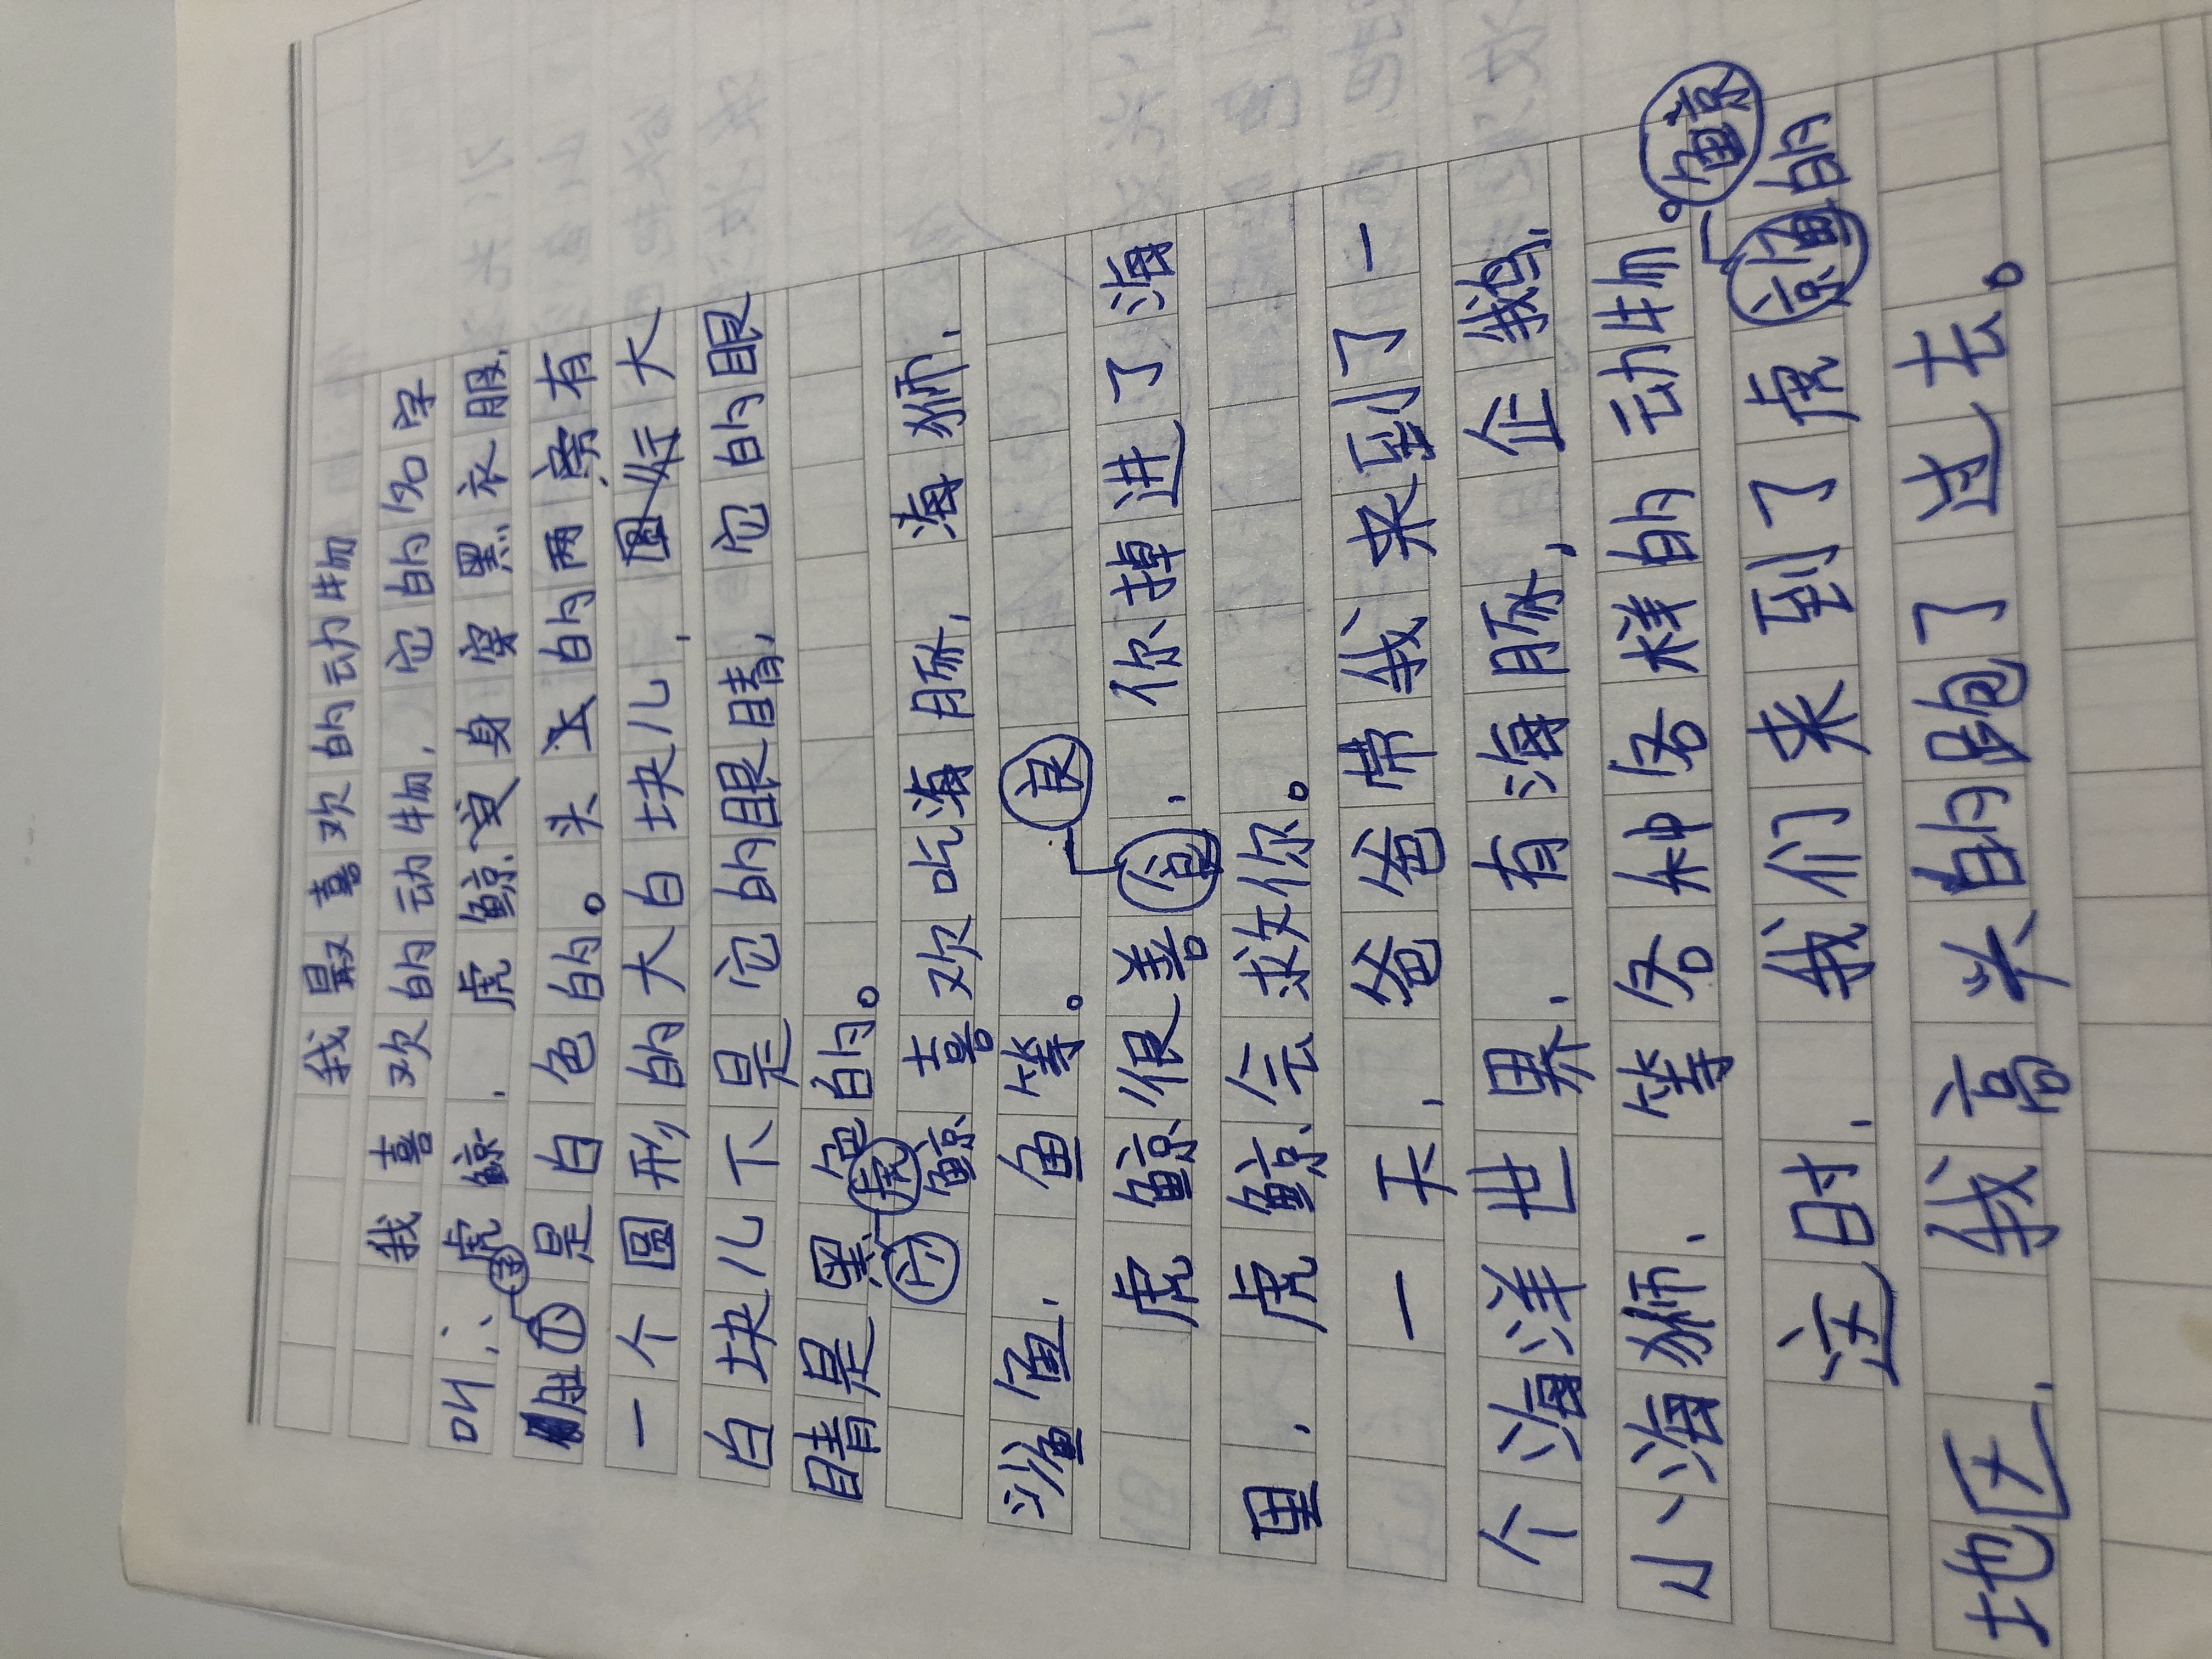 我最喜欢的动物
我喜欢的动物，它的名字
叫：虎鲸．虎鲸变身穿黑衣服，
肚是白色的。头上的两旁有
一个圆形的大白块儿，圆形大
白块儿下是它的眼睛，它的眼
睛是黑色的。
虎鲸喜欢吃海豚，海狮，
沙鲨鱼，鱼等。
良
虎鲸很善，你掉进了海
里，虎鲸会救你。
一天，爸爸带我来到了一
个海洋世界，有海豚，企鹅，
小海狮，等各种各样的动物。
鲸
这时，我们来到了虎鲸的
地区，我高兴的跑了过去。